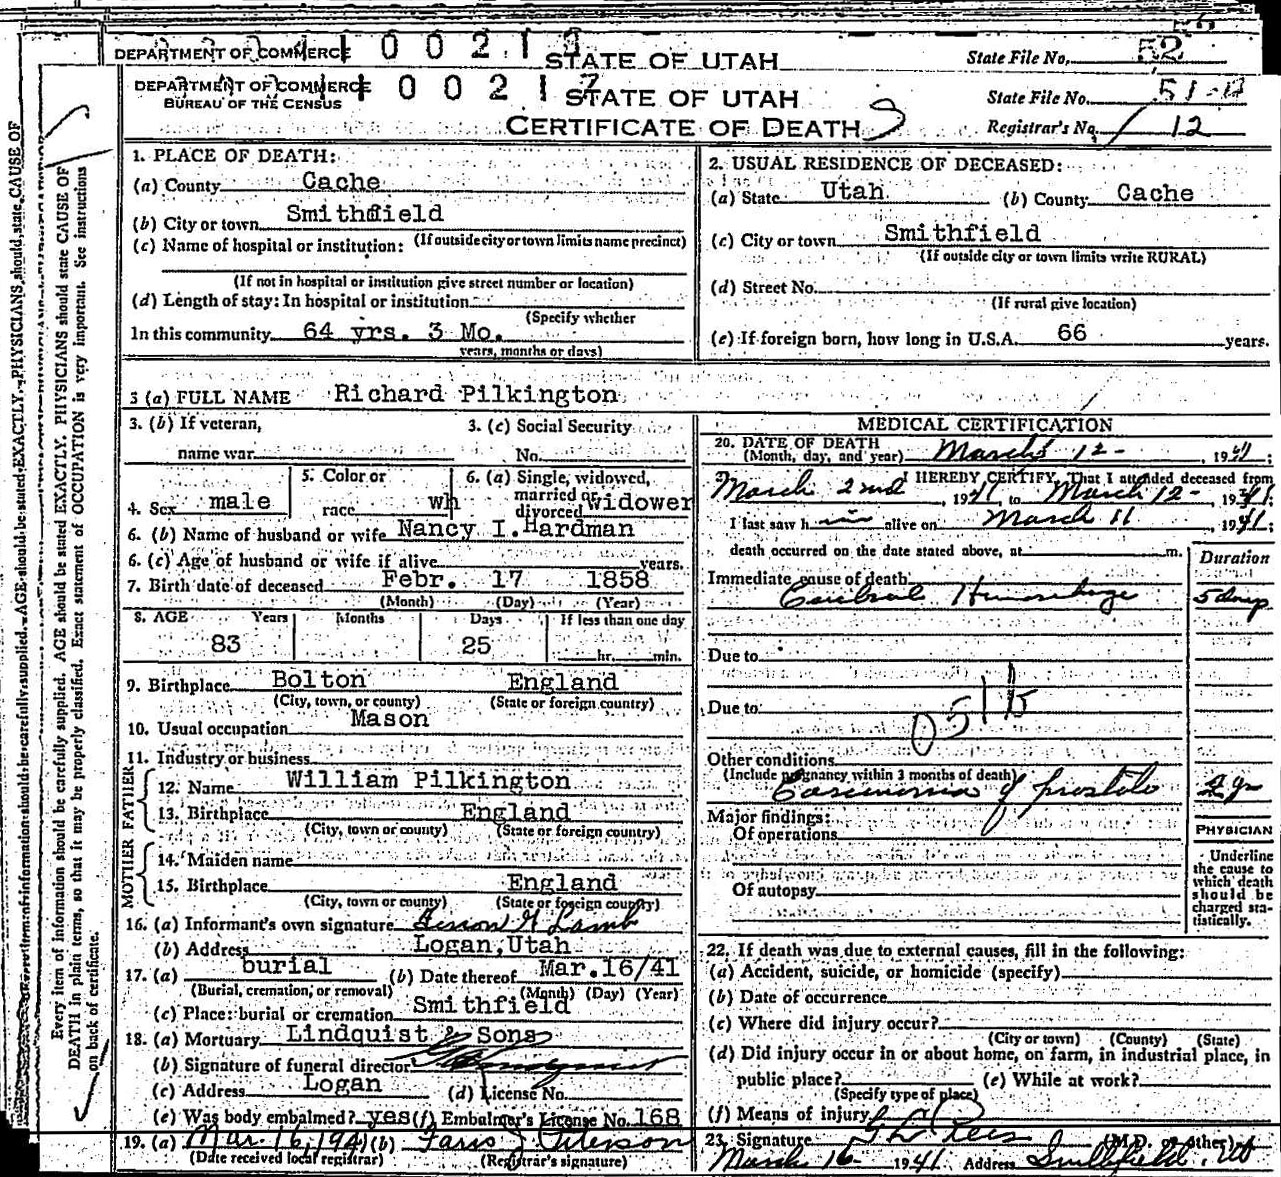 DEPARTMENT OF COMMERCE STATE OF UTAH State File No. 52
DEPARTMENT OF COMMERCE 1 0 0 2 1 7 STATE OF UTAH State File No.
BUREAU OF THE CENSUS
CERTIFICATE OF DEATH Registrar's No. 12
1. PLACE OF DEATH:
(a) County Cache
(b) City or town Smithfield
(If outside city or town limits name precinct)
(c) Name of hospital or institution:
(If not in hospital or institution give street number or location)
(d) Length of stay: In hospital or institution
(Specify whether
In this community 64 yrs. 3 Mo.
years, months or days)
2. USUAL RESIDENCE OF DECEASED:
(a) State Utah (b) County Cache
(c) City or town Smithfield
(If outside city or town limits write RURAL)
(d) Street No.
(If rural give location)
(e) If foreign born, how long in U.S.A. 66 years.
3 (a) FULL NAME Richard Pilkington
3. (b) If veteran, 3. (c) Social Security
name war No.
4. Sex male 5. Color or race wh 6. (a) Single, widowed, married or divorced widower
6. (b) Name of husband or wife Nancy I. Hardman
6. (c) Age of husband or wife if alive years.
7. Birth date of deceased Febr. 17 1858
(Month) (Day) (Year)
8. AGE Years Months Days If less than one day
83 25 hr. min.
9. Birthplace Bolton England
(City, town, or county) (State or foreign country)
10. Usual occupation Mason
11. Industry or business
FATHER
12. Name William Pilkington
13. Birthplace England
(City, town or county) (State or foreign country)
MOTHER
14. Maiden name
15. Birthplace England
(City, town or county) (State or foreign country)
16. (a) Informant's own signature Lamb
(b) Address Logan, Utah
17. (a) burial (b) Date thereof Mar. 16/41
(Burial, cremation, or removal) (Month) (Day) (Year)
(c) Place: burial or cremation Smithfield
18. (a) Mortuary Lindquist & Sons
(b) Signature of funeral director
(c) Address Logan (d) License No.
(e) Was body embalmed? yes (f) Embalmer's License No. 168
19. (a) Mar. 16, 1941 (b) Peterson
(Date received local registrar) (Registrar's signature)
MEDICAL CERTIFICATION
20. DATE OF DEATH
(Month, day, and year) March 12 - , 1941;
21. I HEREBY CERTIFY, That I attended deceased from
March 2nd , 1941 to March 12 - , 1941.
I last saw him alive on March 11 , 1941;
death occurred on the date stated above, at m. Duration
Immediate cause of death
Cerebral Hemorrhage 5 days
Due to
Due to
Other conditions
(Include pregnancy within 3 months of death)
Carcinoma of prostate 2 yr
Major findings:
Of operations
Of autopsy
PHYSICIAN
Underline the cause to which death should be charged statistically.
22. If death was due to external causes, fill in the following:
(a) Accident, suicide, or homicide (specify)
(b) Date of occurrence
(c) Where did injury occur?
(City or town) (County) (State)
(d) Did injury occur in or about home, on farm, in industrial place, in
public place? (e) While at work?
(Specify type of place)
(f) Means of injury
23. Signature G L Rees (M.D. or other)
March 16 - 1941 Address Smithfield, Ut
Every item of information should be carefully supplied. AGE should be stated EXACTLY. PHYSICIANS should state CAUSE OF
DEATH in plain terms, so that it may be properly classified. Exact statement of OCCUPATION is very important. See instructions
on back of certificate.